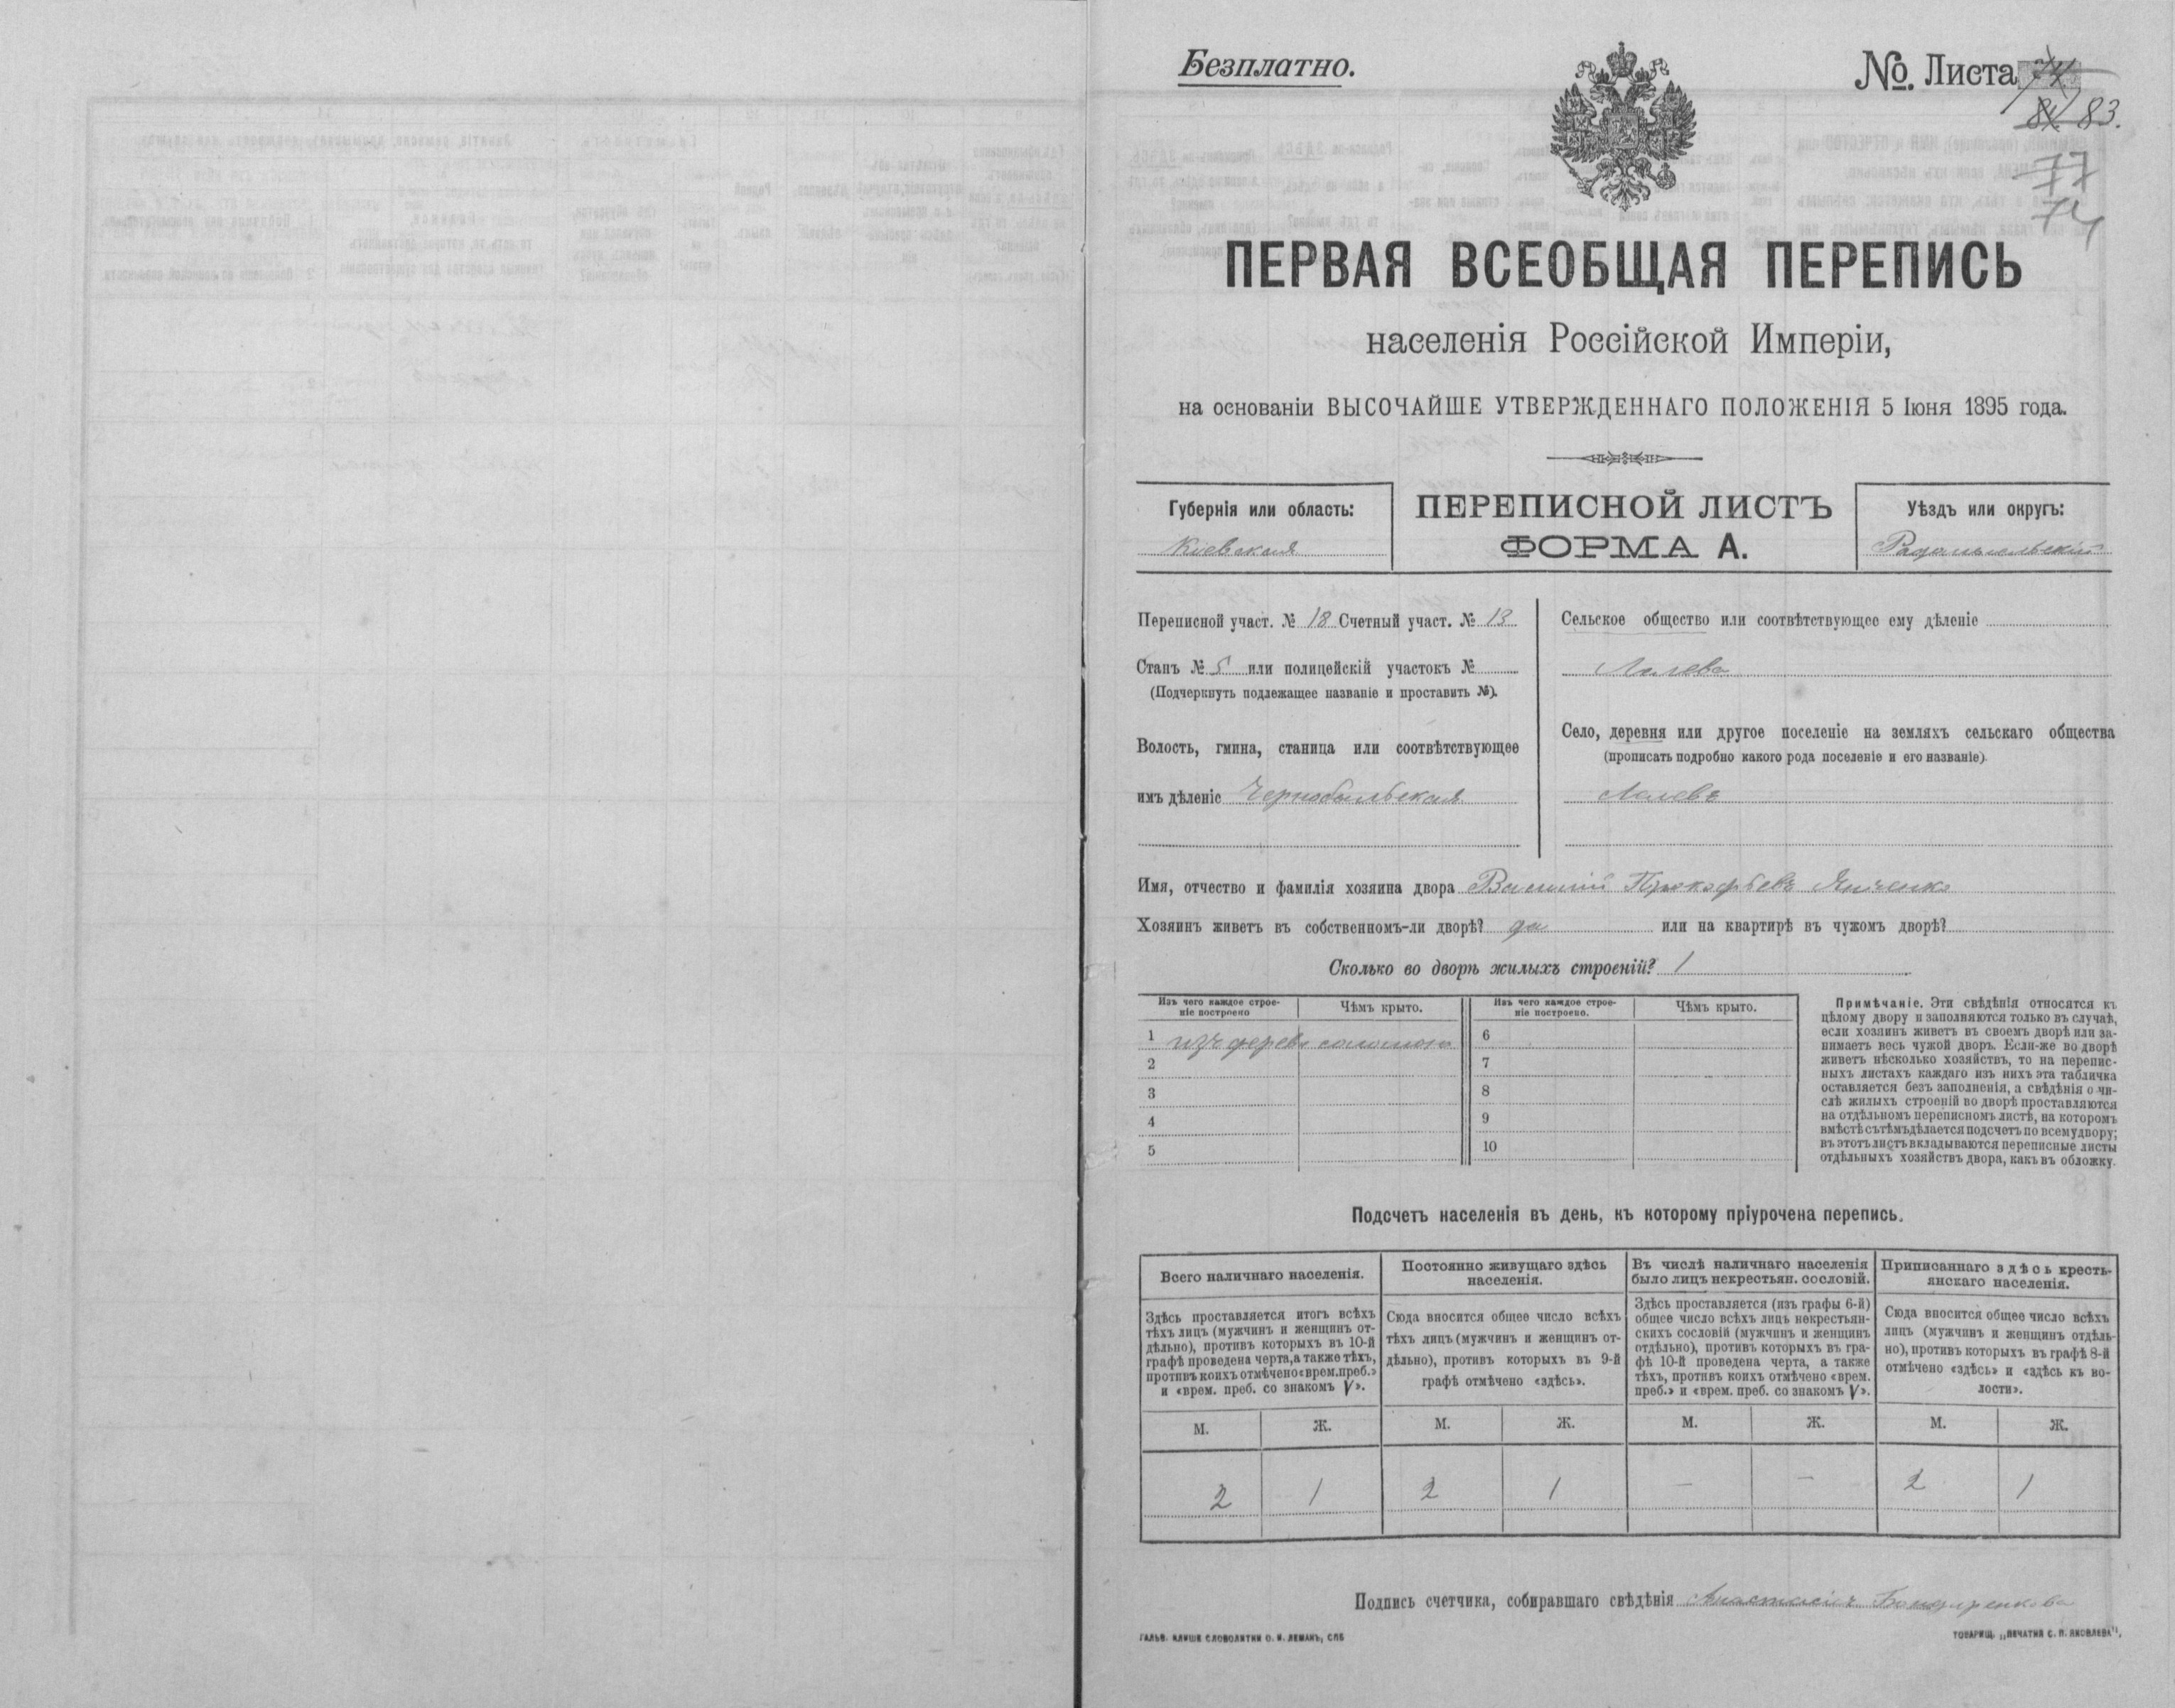 Безплатно.
№ Листа 74
81 83.
77
74
ПЕРВАЯ ВСЕОБЩАЯ ПЕРЕПИСЬ
населенія Россійской Имперіи,
на основаніи ВЫСОЧАЙШЕ УТВЕРЖДЕННАГО ПОЛОЖЕНІЯ 5 Іюня 1895 года.
Губернія или область:
Кіевская
ПЕРЕПИСНОЙ ЛИСТЪ
ФОРМА А.
Уѣздъ или округъ:
Радомысльскій
Переписной участ. № 18 Счетный участ. № 13
Станъ № 5 или полицейскій участокъ №
(Подчеркнуть подлежащее названіе и проставить №).
Волость, гмина, станица или соотвѣтствующее
имъ дѣленіе Чернобыльская
Сельское общество или соотвѣтствующее ему дѣленіе
Село, деревня или другое поселеніе на земляхъ сельскаго общества
(прописать подробно какого рода поселеніе и его названіе).
Лелевъ
Имя, отчество и фамилія хозяина двора Василій Прокофьевъ
Хозяинъ живетъ въ собственномъ-ли дворѣ? да или на квартирѣ въ чужомъ дворѣ?
Сколько во дворѣ жилыхъ строеній? 1
Изъ чего каждое строе-
ніе построено
Чѣмъ крыто.
Изъ чего каждое строе-
ніе построено.
Чѣмъ крыто.
1 изъ дерева соломою
2
3
4
5
6
7
8
9
10
Примѣчаніе. Эти свѣдѣнія относятся къ
цѣлому двору и заполняются только въ случаѣ,
если хозяинъ живетъ въ своемъ дворѣ или за-
нимаетъ весь чужой дворъ. Если-же во дворѣ
живетъ нѣсколько хозяйствъ, то на перепис-
ныхъ листахъ каждаго изъ нихъ эта табличка
оставляется безъ заполненія, а свѣдѣнія о чи-
слѣ жилыхъ строеній во дворѣ проставляются
на отдѣльномъ переписномъ листѣ, на которомъ
вмѣстѣ съ тѣмъ дѣлается подсчетъ по всему двору;
въ этотъ листъ вкладываются переписные листы
отдѣльныхъ хозяйствъ двора, какъ въ обложку.
Подсчетъ населенія въ день, къ которому пріурочена перепись.
Всего наличнаго населенія.
Здѣсь проставляется итогъ всѣхъ
тѣхъ лицъ (мужчинъ и женщинъ от-
дѣльно), противъ которыхъ въ 10-й
графѣ проведена черта, а также тѣхъ,
противъ коихъ отмѣчено «врем. преб.»
и «врем. преб. со знакомъ V».
Постоянно живущаго здѣсь
населенія.
Сюда вносится общее число всѣхъ
тѣхъ лицъ (мужчинъ и женщинъ от-
дѣльно), противъ которыхъ въ 9-й
графѣ отмѣчено «здѣсь».
Въ числѣ наличнаго населенія
было лицъ некрестьян. сословій.
Здѣсь проставляется (изъ графы 6-й)
общее число всѣхъ лицъ некрестьян-
скихъ сословій (мужчинъ и женщинъ
отдѣльно), противъ которыхъ въ гра-
фѣ 10-й проведена черта, а также
тѣхъ, противъ коихъ отмѣчено «врем.
преб.» и «врем. преб. со знакомъ V».
Приписаннаго здѣсь кресть-
янскаго населенія.
Сюда вносится общее число всѣхъ
лицъ (мужчинъ и женщинъ отдѣль-
но), противъ которыхъ въ графѣ 8-й
отмѣчено «здѣсь» и «здѣсь къ во-
лости».
М. Ж. М. Ж. М. Ж. М. Ж.
2 1 2 1 — — 2 1
Подпись счетчика, собиравшаго свѣдѣнія
ГАЛЬВ. КЛИШЕ СЛОВОЛИТНИ О. И. ЛЕМАНЪ, СПБ
ТОВАРИЩ. „ПЕЧАТНЯ С. П. ЯКОВЛЕВА",